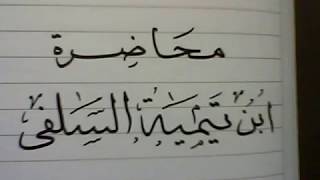 محَاضِرة
ابْن تَيْمِيَة السَّلَفى